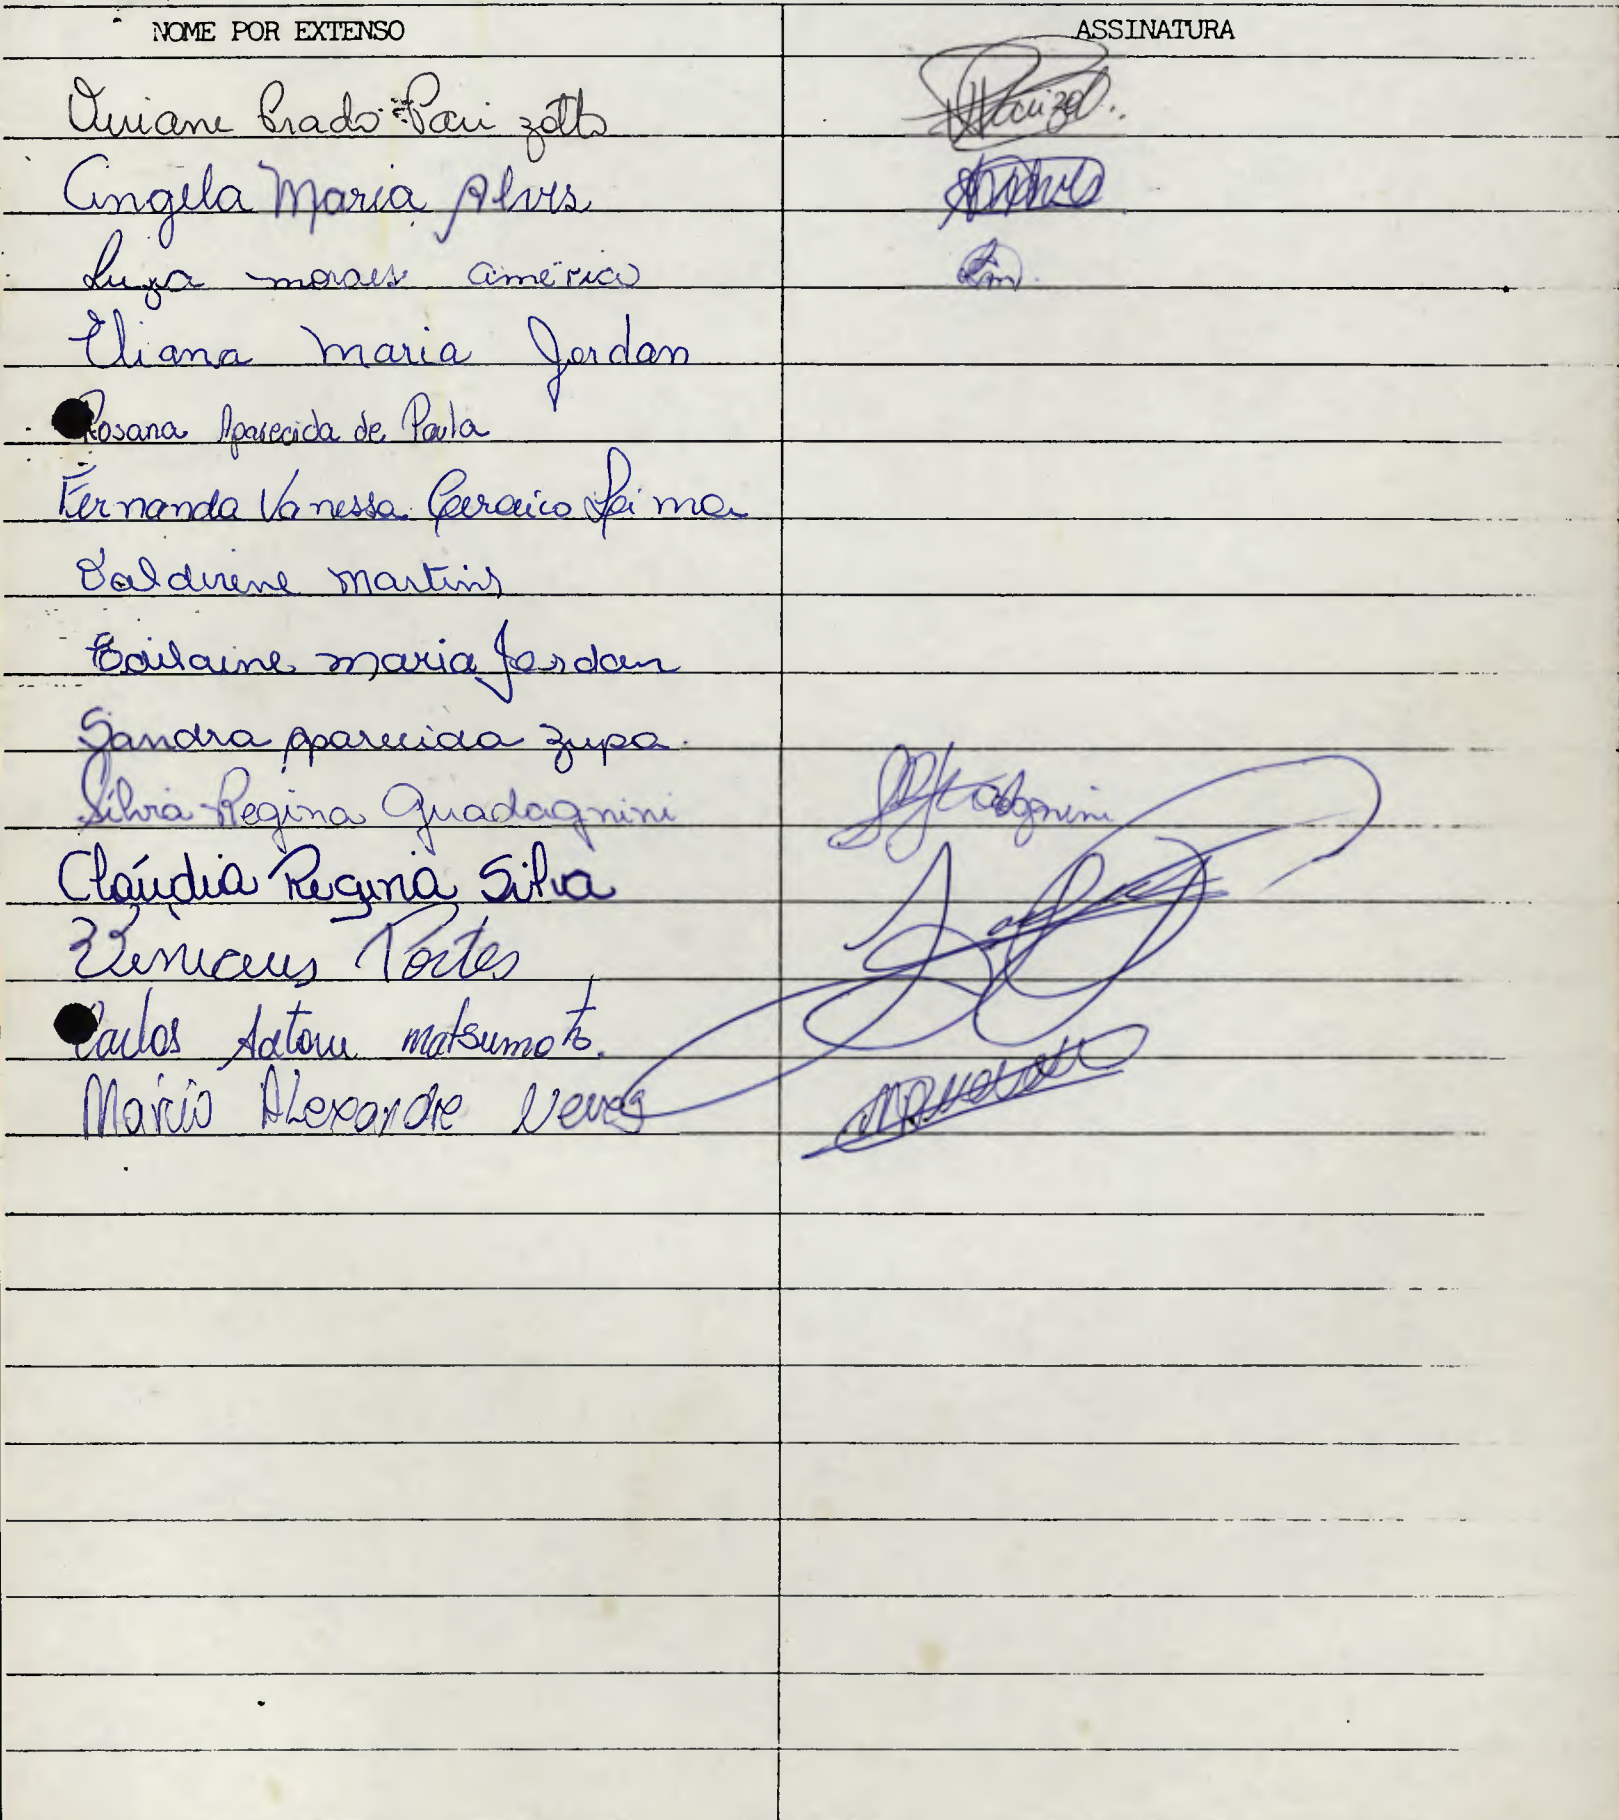 NOME POR EXTENSO ASSINATURA
Viviane Prado Parizotto
Angela Maria Alves
Luzia moraes américo
Eliana Maria Jordan
Rosana Aparecida de Paula
Fernanda Vanessa Lima
Valdirene Martins
maria Jordan
Sandra Aparecida Zupa.
Silvia Regina Guadagnini
Cláudia Regina Silva
Vinicius Portes
Carlos Satoru matsumoto.
Marcio Alexandre Neves